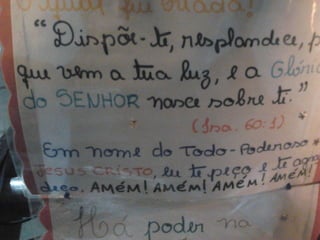 o qual fui criada!
"Dispõe-te, resplandece, p
que vem a tua luz, e a Glória
do SENHOR nasce sobre ti."
(Isa. 60:1)
Em nome do Todo-Poderoso
JESUS CRISTO, eu te peço e te agra
deço. AMÉM! AMÉM! AMÉM! AMÉM!
Há poder na